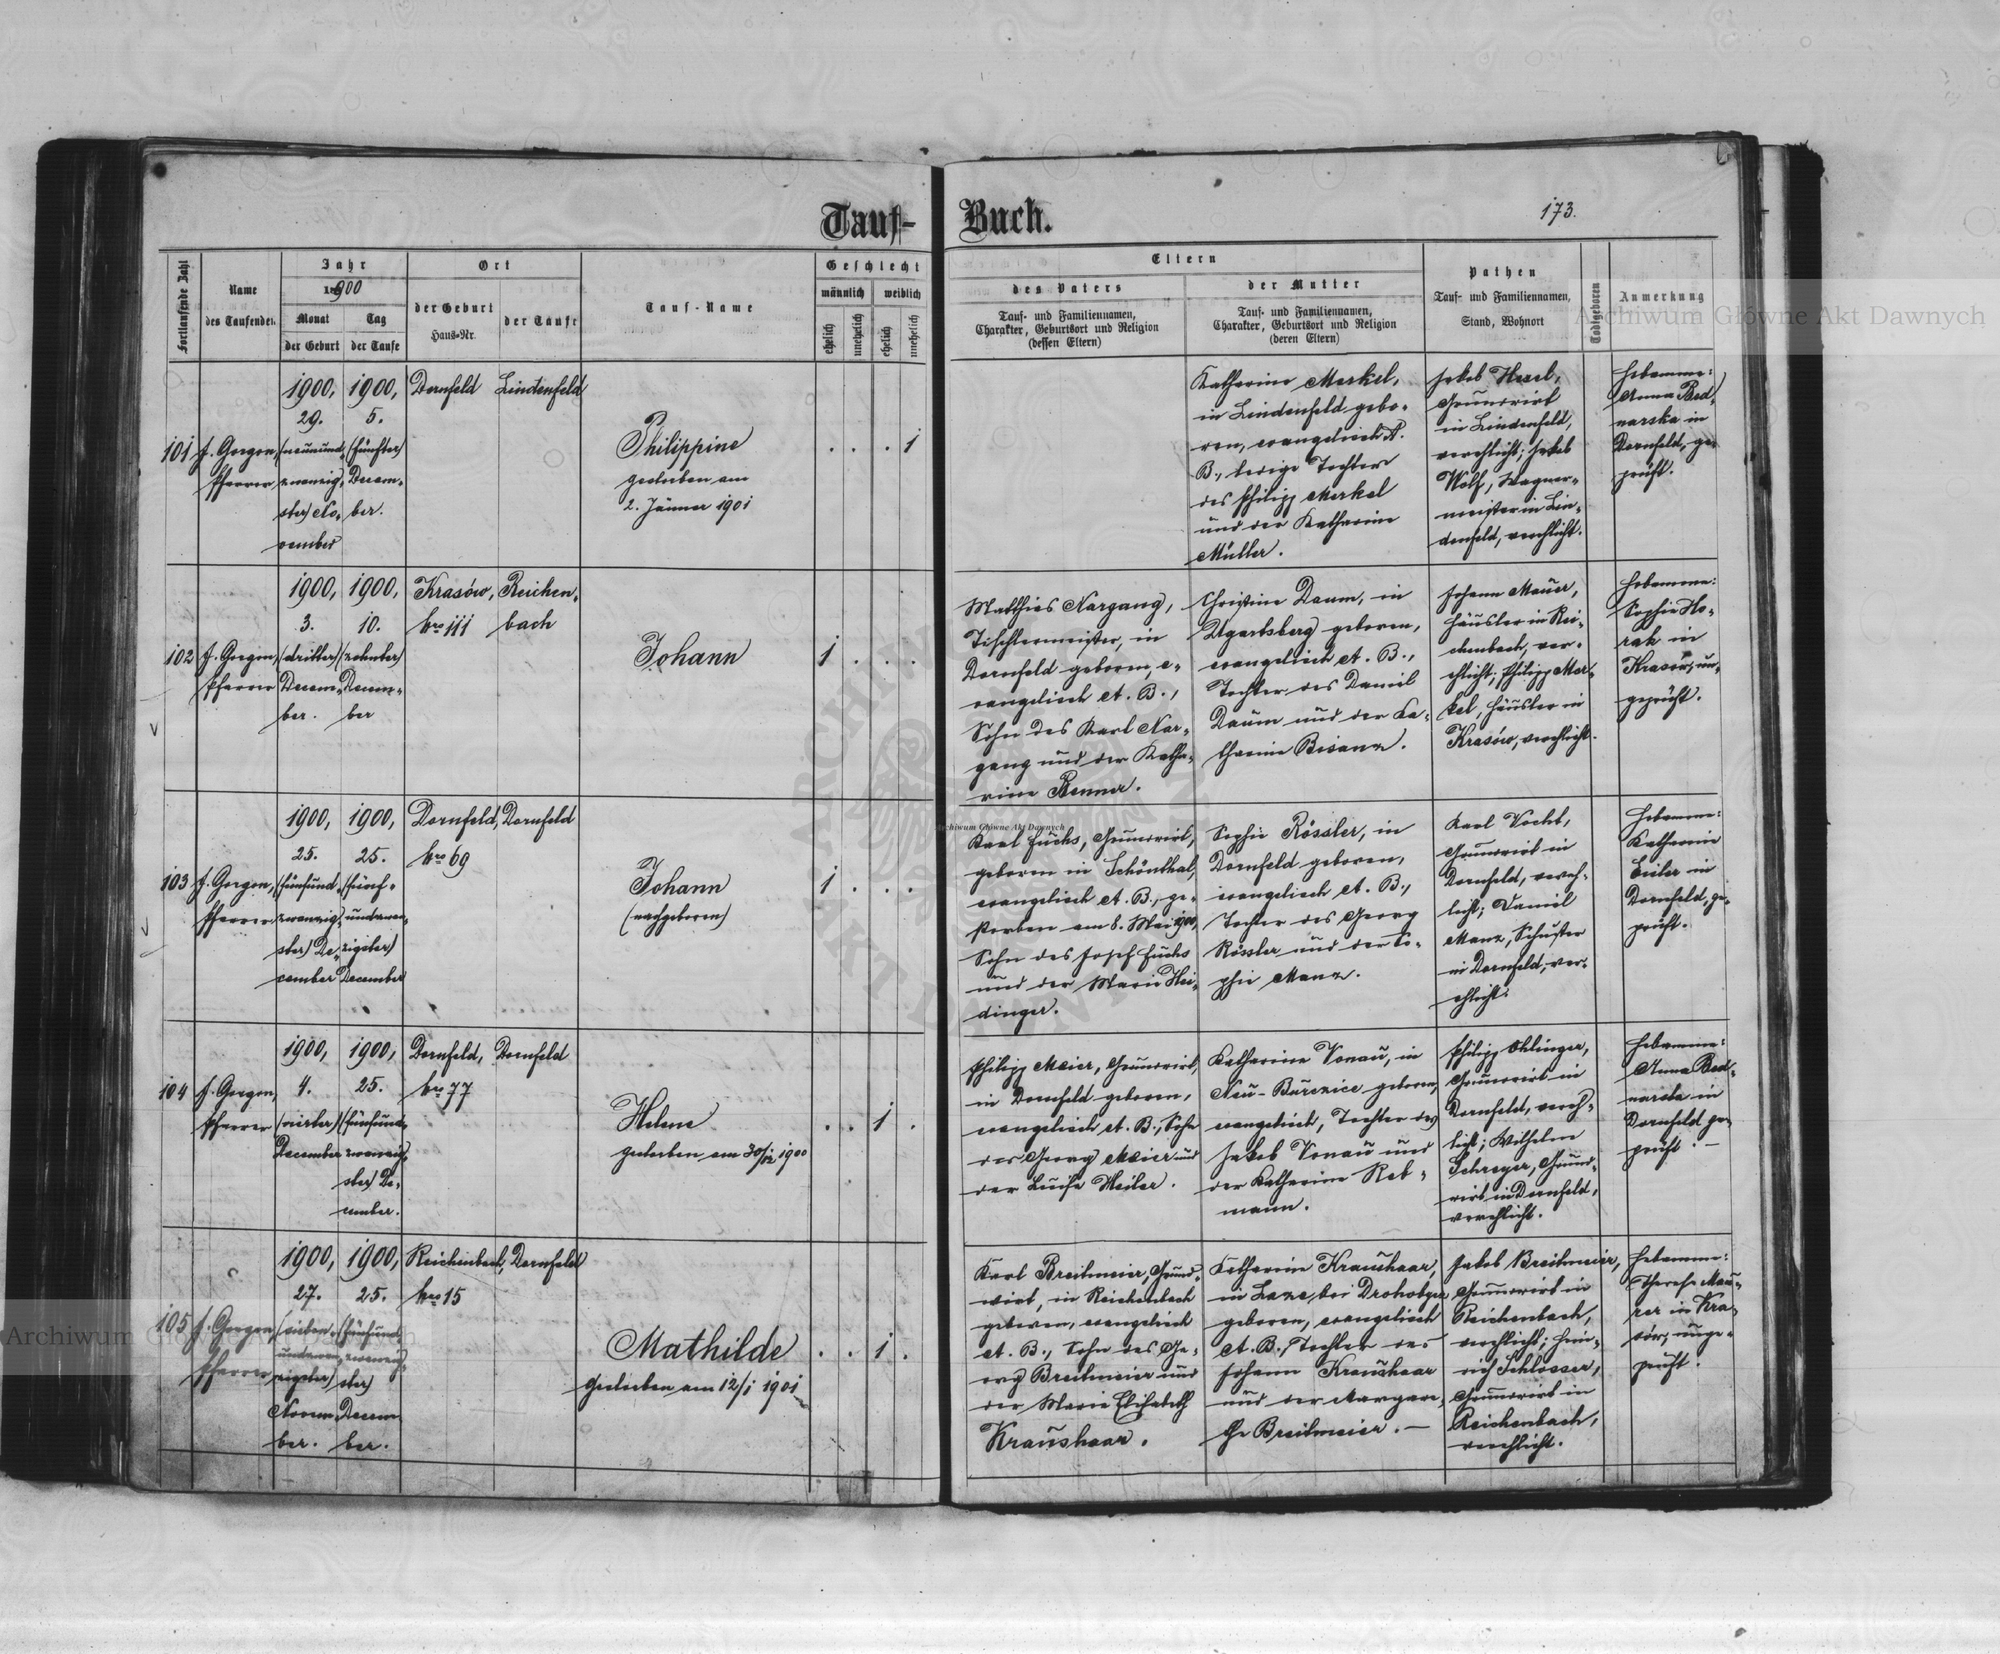 Tauf-Buch.
173.
Fortlaufende Zahl
Name
des Taufenden
Jahr
1900
Monat
der Geburt
Tag
der Taufe
Ort
der Geburt
Haus-Nr.
der Taufe
Tauf-Name
Geschlecht
männlich
weiblich
ehelich
unehelich
ehelich
unehelich
Eltern
des Vaters
Tauf- und Familiennamen,
Charakter, Geburtsort und Religion
(dessen Eltern)
der Mutter
Tauf- und Familiennamen,
Charakter, Geburtsort und Religion
(deren Eltern)
Pathen
Tauf- und Familiennamen,
Stand, Wohnort
Todtgeboren
Anmerkung
101
J. Gorgon,
Pfarrer
1900,
29.
(neunund-
zwanzig-
ster) No-
vember
1900,
5.
(fünfter)
Decem-
ber.
Dornfeld
Lindenfeld
Philippine
gestorben am
2. Jänner 1901
1
Katharine Merkel,
in Lindenfeld gebo-
ren, evangelisch A.
B., ledige Tochter
des Philipp Merkel
und der Katharine
Müller.
Jakob Hexel,
Grundwirt
in Lindenfeld,
verehlicht; Jakob
Wolf, Wagner-
meister in Lin-
denfeld, verehlicht.
Hebamme:
Anna Bed-
narska in
Dornfeld, ge-
prüft.
102
J. Gorgon,
Pfarrer
1900,
3.
(dritter)
Decem-
ber.
1900,
10.
(zehnter)
Decem-
ber
Krasów,
Nro 111
Reichen-
bach
Johann
1
Matthias Nargang,
Tischlermeister, in
Dornfeld geboren, e-
vangelisch A. B.,
Sohn des Karl Nar-
gang und der Katha-
rine Benner.
Christine Daum, in
Ugartsberg geboren,
evangelisch A. B.,
Tochter des Daniel
Daum und der Ka-
tharine Bisanz.
Johann Mauer,
Häusler in Rei-
chenbach, ver-
ehlicht; Philipp Mer-
kel, Häusler in
Krasów, verehlicht.
Hebamme:
Sophie Ho-
rak in
Krasów, un-
geprüft.
103
J. Gorgon,
Pfarrer
1900,
25.
(fünfund-
zwanzig-
ster) De-
cember
1900,
25.
(fünf-
undzwan-
zigster)
December
Dornfeld,
Nro 69
Dornfeld
Johann
(nachgeboren)
1
Karl Fuchs, Grundwirt,
geboren in Schönthal,
evangelisch A. B., ge-
storben am 8. Mai 1900,
Sohn des Josef Fuchs
und der Marie Hei-
dinger.
Sophie Rössler, in
Dornfeld geboren,
evangelisch A. B.,
Tochter des Georg
Rössler und der So-
phie Manz.
Karl Vocht,
Grundwirt in
Dornfeld, vereh-
licht; Daniel
Manz, Schuster
in Dornfeld, ver-
ehlicht.
Hebamme:
Katharine
Eisler in
Dornfeld, ge-
prüft.
104
J. Gorgon,
Pfarrer
1900,
4.
(vierter)
December
1900,
25.
(fünfund-
zwanzig-
ster) De-
cember.
Dornfeld,
Nro 77
Dornfeld
Helene
gestorben am 30/12 1900
1
Philipp Meier, Grundwirt,
in Dornfeld geboren,
evangelisch A. B., Sohn
des Georg Meier und
der Luise Weiler.
Katharine Vonau, in
Neu-Burczice geboren,
evangelisch, Tochter des
Jakob Vonau und
der Katharine Reb-
mann.
Philipp Ohlinger,
Grundwirt in
Dornfeld, vereh-
licht; Wilhelm
Schreyer, Grund-
wirt in Dornfeld,
verehlicht.
Hebamme:
Anna Bed-
narska in
Dornfeld ge-
prüft. —
105
J. Gorgon,
Pfarrer
1900,
27.
(sieben-
undzwan-
zigster)
Novem-
ber.
1900,
25.
(fünfund-
zwanzig-
ster)
Decem-
ber.
Reichenbach,
Nro 15
Dornfeld
Mathilde
gestorben am 12/1 1901
1
Karl Breitmeier, Grund-
wirt, in Reichenbach
geboren, evangelisch
A. B., Sohn des Ge-
org Breitmeier und
der Marie Elisabeth
Kraushaar.
Katharine Kraushaar,
in Laze bei Drohobycz
geboren, evangelisch
A. B., Tochter des
Johann Kraushaar
und der Margare-
the Breitmeier. —
Jakob Breitmeier,
Grundwirt in
Reichenbach,
verehlicht; Hein-
rich Schlosser,
Grundwirt in
Reichenbach,
verehlicht.
Hebamme:
Therese Mau-
rer in Kra-
sów, unge-
prüft.
Archiwum Główne Akt Dawnych
Archiwum Główne Akt Dawnych
Archiwum